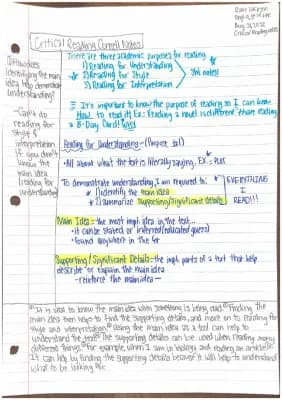 Aug 31, 2022
Critical Reading Notes
Critical Reading Cornell Notes
There are three academic purposes for reading
1) Reading for Understanding
2) Reading for Style
3) Reading for Interpretation
3rd notes!
How does
identifying the main
idea help demonstrate
understanding?
- Can't do
reading for
style &
interpretation
if you don't
know the
main idea
(reading for
understanding)
It's important to know the purpose of reading so I can know
How to read it! Ex: Reading a novel is different than reading
a B-Day Card!
Reading for Understanding -
All about what the text is literally saying. Ex:
To demonstrate understanding I am required to:
1) Identify the main idea
2) summarize supporting/significant details
EVERYTHING
I
READ!!!
Main Idea = the most impt idea in the text...
it can be stated or inferred (educated guess)
found anywhere in the
Supporting/Significant Details = the impt parts of a text that help
describe or explain the main idea
- reinforce the main idea -
It is vital to know the main idea when something is being read. Finding the
main idea then helps to find the supporting details, and move on to reading for
style and interpretation. Using the main idea as a tool can help to
understand the text. The supporting details can be used when reading many
different things. For example, when I am in biology and reading an article
It can help by finding the supporting details because it will help to understand
what to be looking for.